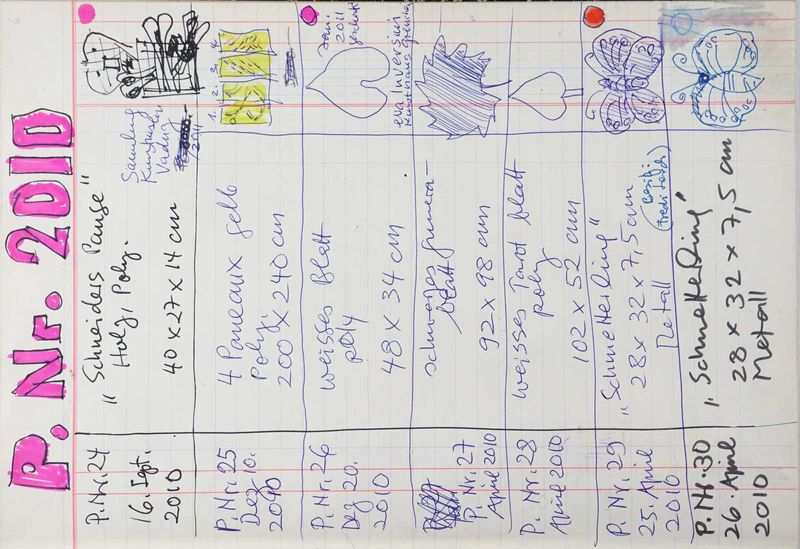 P. Nr. 2010
P.Nr. 24
16. Sept.
2010
"Schneiders Pause"
Holz, Poly.
40 x 27 x 14 cm
Sammlung
Kunstmuseum
Vaduz
2011
P. Nr. 25
Dez 10.
2010
4 Paneaux gelb
Poly.
200 x 240 cm
1. 2. 3. 4.
P. Nr. 26
Dez 20.
2010
weisses Blatt
poly
48 x 34 cm
Jan.
2011
eva inversini
P. Nr. 27
April 2010
schwarzes
blatt
92 x 98 cm
P. Nr. 28
April 2010
weisses Blatt
poly
102 x 52 cm
P. Nr. 29
25. April
2010
"Schmetterling"
28 x 32 x 7,5 cm
Metall
P. Nr. 30
26. April
2010
"Schmetterling"
28 x 32 x 7,5 cm
Metall